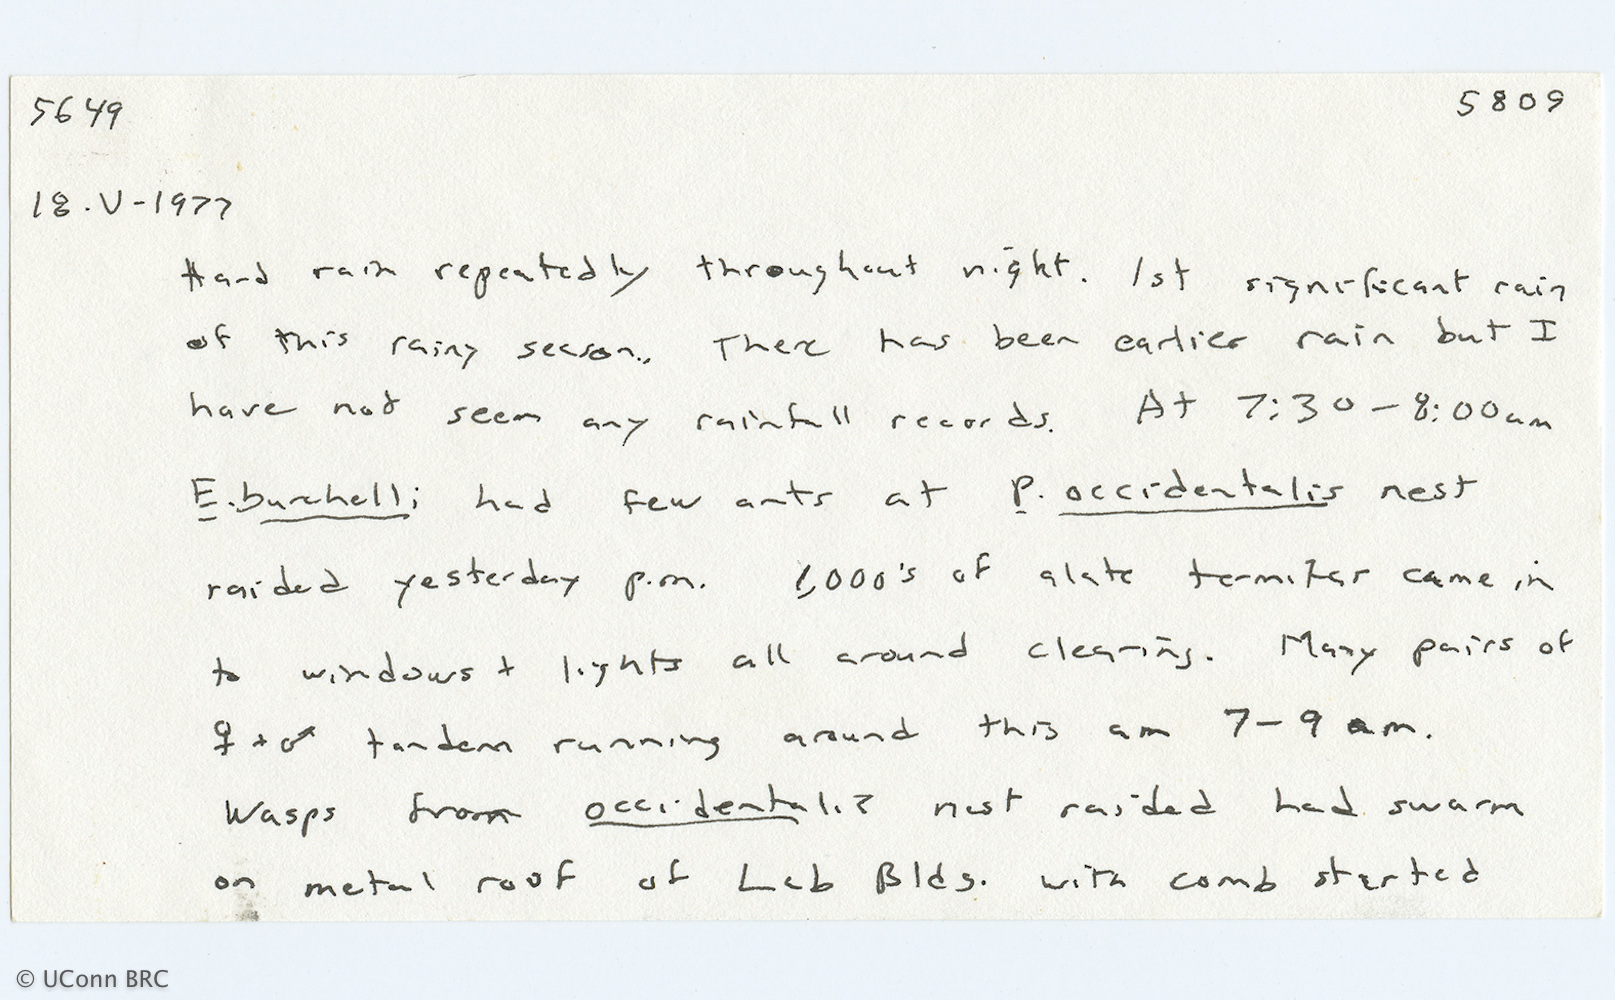 5649 5809
18.V-1977
Hard rain repeatedly throughout night. 1st significant rain
of this rainy season. There has been earlier rain but I
have not seem any rainfall records. At 7:30-8:00am
E. burchelli had few ants at P. occidentalis nest
raided yesterday p.m. 1,000's of alate termites came in
to windows + lights all around clearing. Many pairs of
♀ + ♂ tandem running around this am 7-9 am.
Wasps from occidentalis nest raided had swarm
on metal roof of Lab Bldg. with comb started
© UConn BRC